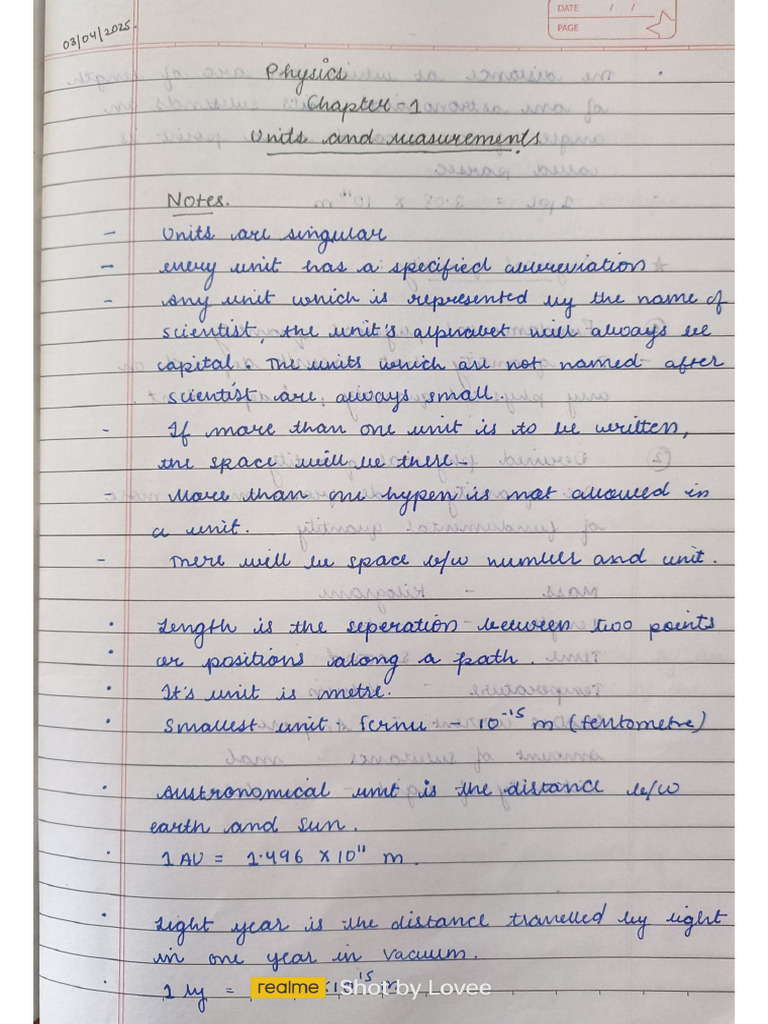 03/04/2025.
DATE / /
PAGE
Physics
Chapter 1
Units and measurements.
Notes.
- Units are singular
- every unit has a specified abbreviation
- Any unit which is represented by the name of
scientist, the unit's alphabet will always be
capital. The units which are not named after
scientist are always small.
- If more than one unit is to be written,
the space will be there -
- More than one hypen is not allowed in
a unit.
- There will be space b/w number and unit.
• Length is the seperation between two points
• or positions along a path.
• It's unit is metre.
• Smallest unit - fermi - 10⁻¹⁵ m (fentometre)
• Austronomical unit is the distance b/w
earth and sun.
• 1 AU = 1.496 × 10¹¹ m.
• Light year is the distance travelled by light
in one year in vacuum.
• 1 ly = ×10¹⁵ m
realme Shot by Lovee